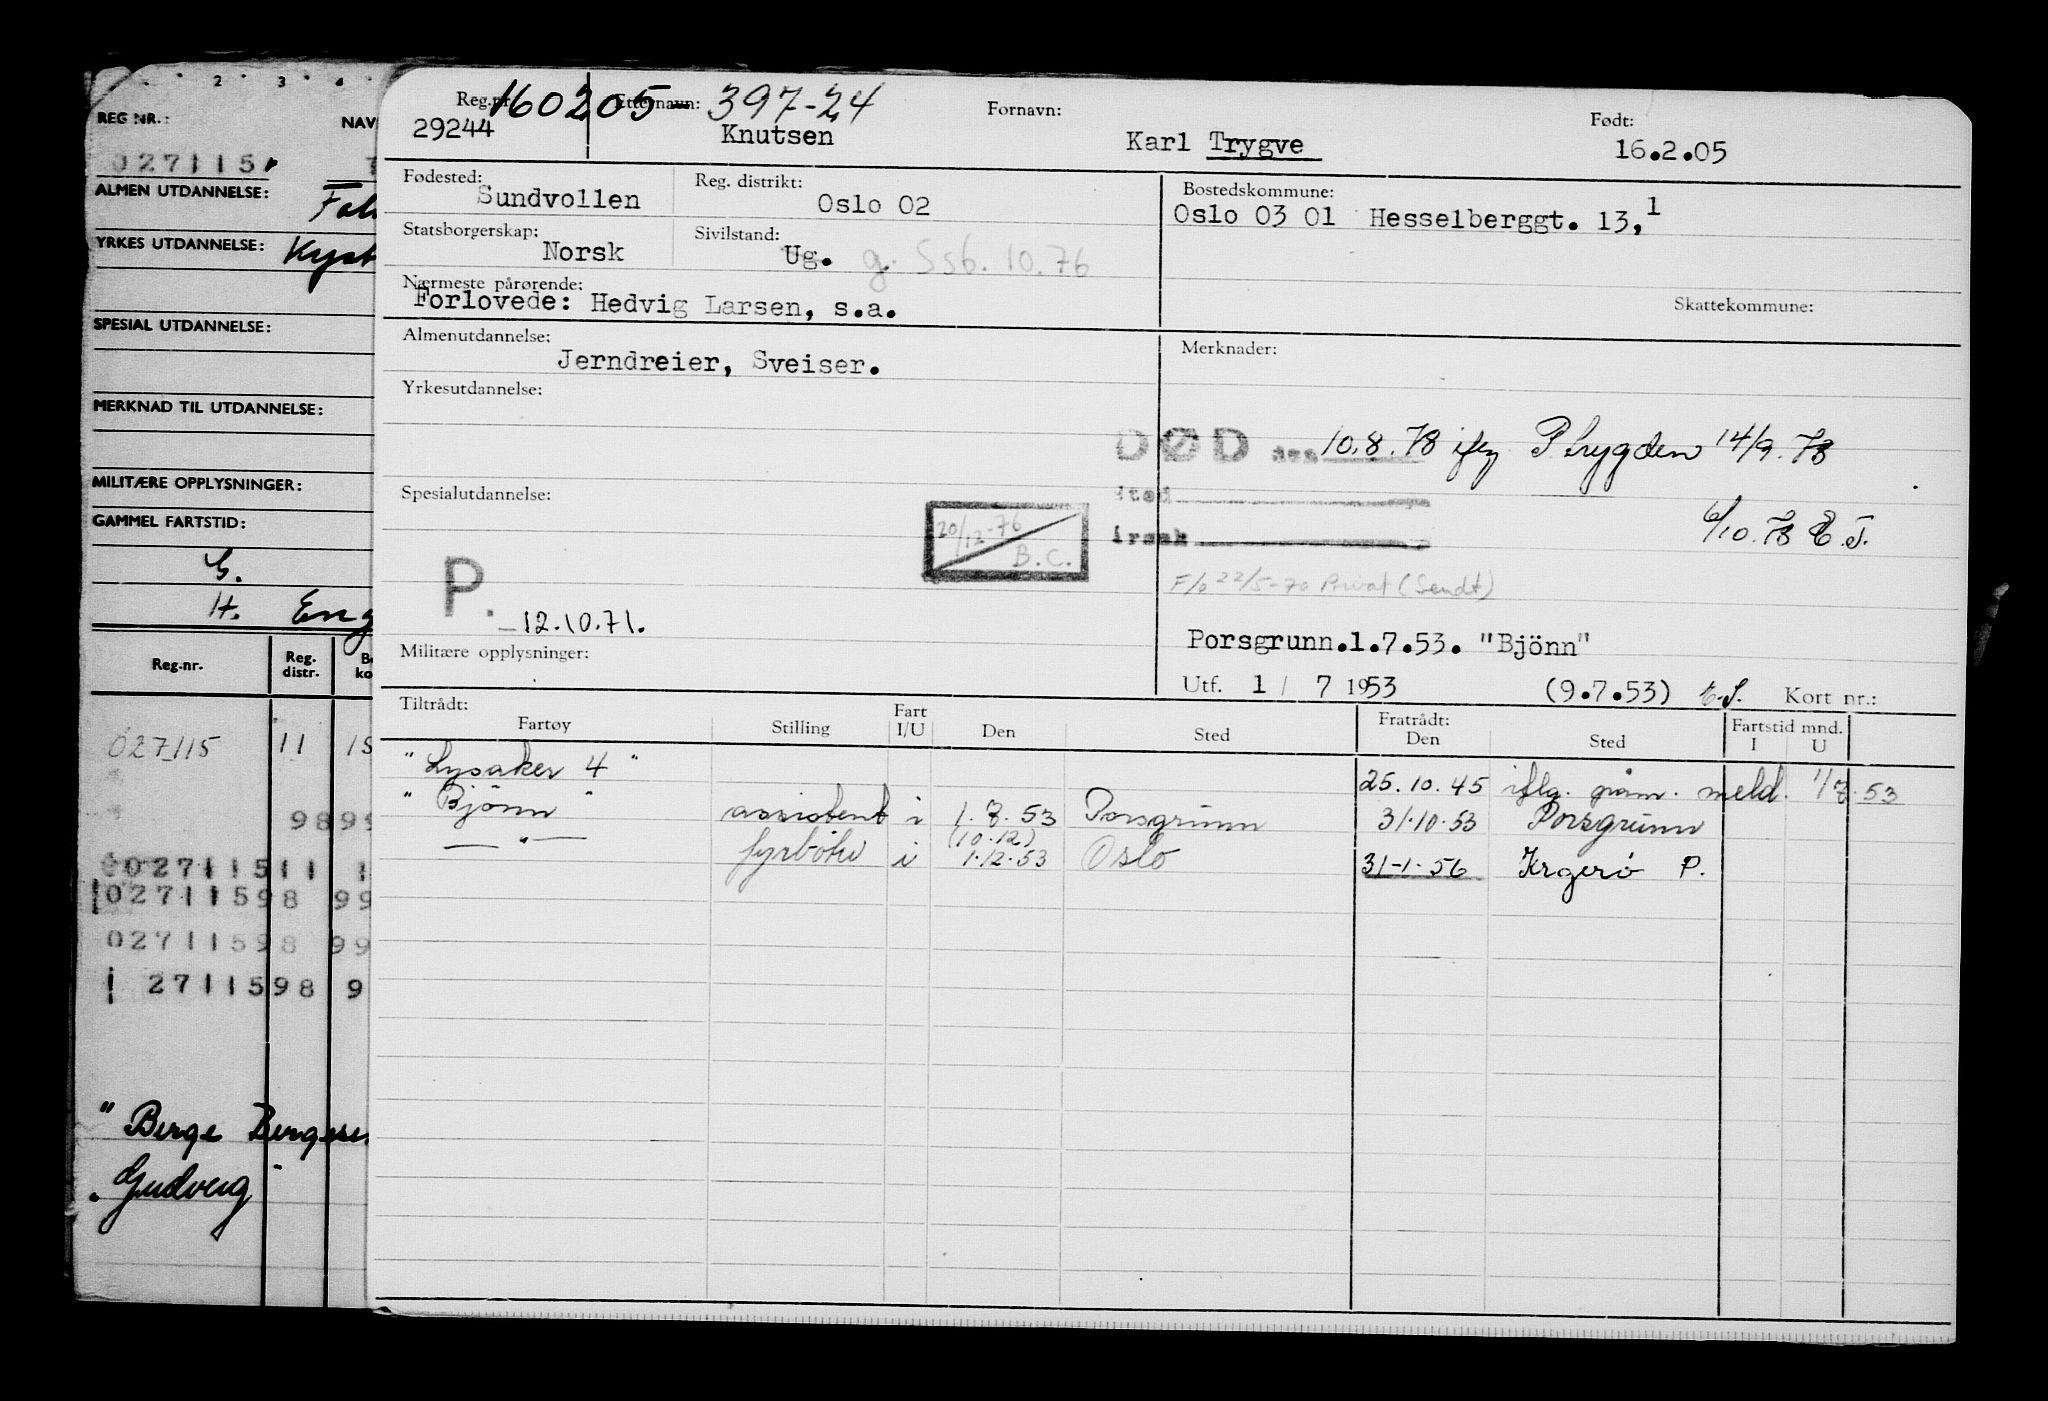 2 3 4
REG NR.:
NAV
0271151
ALMEN UTDANNELSE:
YRKES UTDANNELSE:
Kyst
SPESIAL UTDANNELSE:
MERKNAD TIL UTDANNELSE:
MILITÆRE OPPLYSNINGER:
GAMMEL FARTSTID:
S.
H. Eng
Reg.-nr. Reg. distr. ko
027115 11 15
98 99
02711511
02711598 99
02711598 99
2711598 9
"Berge Bergese
"Gudveig"
Reg.nr. 160205-397-24
29244
Etternavn:
Knutsen
Fornavn:
Karl Trygve
Født:
16.2.05
Fødested:
Sundvollen
Reg. distrikt:
Oslo 02
Bostedskommune:
Oslo 03 01 Hesselberggt. 13,1
Statsborgerskap:
Norsk
Sivilstand:
Ug. g. Ssb. 10.76
Nærmeste pårørende:
Forlovede: Hedvig Larsen, s.a.
Skattekommune:
Almenutdannelse:
Jerndreier, Sveiser.
Merknader:
Yrkesutdannelse:
DØD den 10.8.78 iflg P trygden 14/9.78
sted
Spesialutdannelse:
20/12-76
B.C.
årsak
6/10.78 E.T.
F/b 22/5-70 Privat (Sendt)
P. 12.10.71.
Porsgrunn.1.7.53. "Bjönn"
Militære opplysninger:
Utf. 1 / 7 1953 (9.7.53) Kort nr.:
Tiltrådt:
Fartøy Stilling Fart I/U Den Sted
Fratrådt:
Den Sted
Fartstid mnd.
I U
"Lysaker 4" 25.10.45 iflg. meld. 1/7.53
"Bjönn" assistent i 1.7.53 Porsgrunn 31.10.53 Porsgrunn
(10.12)
— " — fyrböter i 1.12.53 Oslo 31-1-56 Krgerö P.